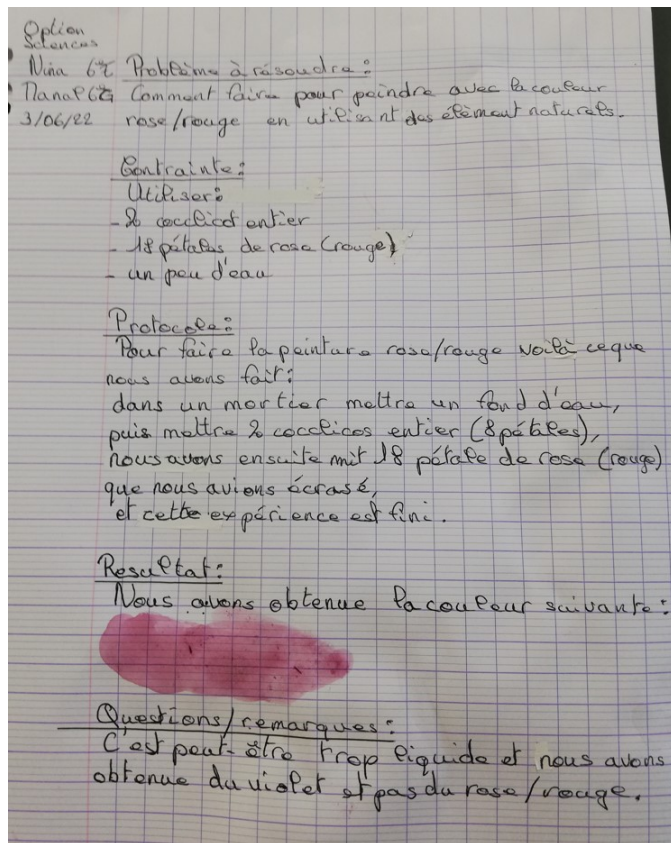 Option
Sciences
Nina 6°C Problème à résoudre :
Comment faire pour peindre avec la couleur
3/06/22 rose/rouge en utilisant des élèment naturels.
Contrainte :
Utiliser :
- 2 coccelicot entier
- 18 pétales de rose (rouge)
- un peu d'eau
Protocole :
Pour faire la peinture rose/rouge voilà ce que
nous avons fait :
dans un mortier mettre un fond d'eau,
puis mettre 2 coccelicos entier (8 pétales),
nous avons ensuite mit 18 pétale de rose (rouge)
que nous avions écrasé,
et cette expérience est fini.
Resultat :
Nous avons obtenue la couleur suivante :
Questions/remarques :
C'est peut-être trop liquide et nous avons
obtenue du violet et pas du rose/rouge.